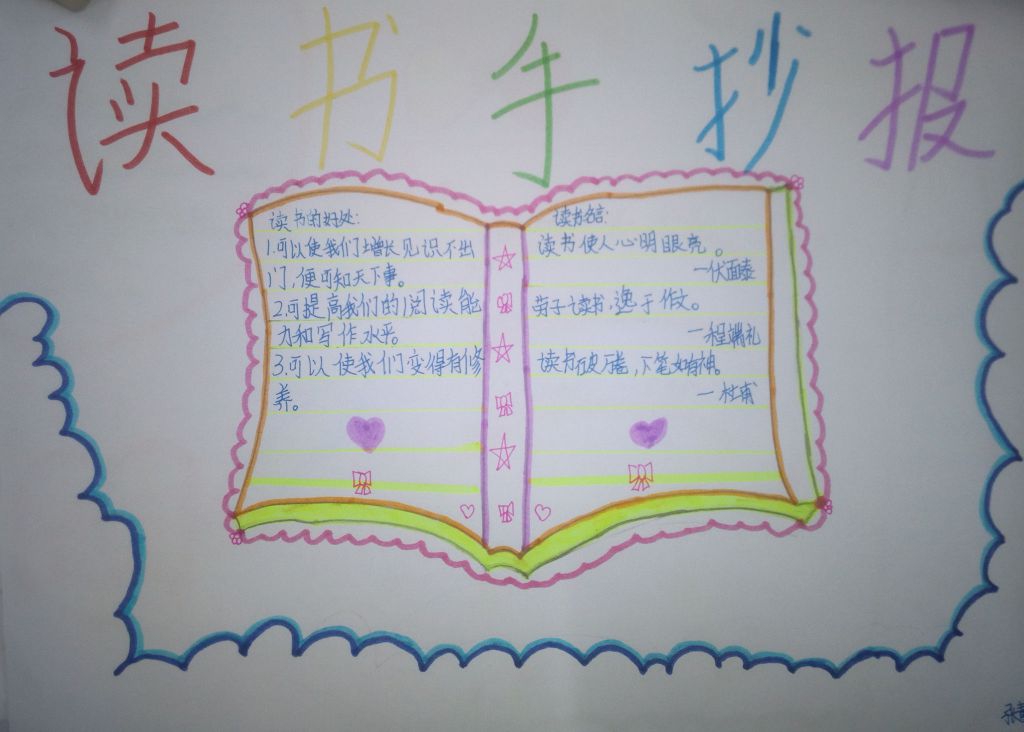 读书手抄报
读书的好处:
1.可以使我们增长见识不出
门,便可知天下事。
2.可提高我们的阅读能
力和写作水平。
3.可以使我们变得有修
养。
读书名言:
读书使人心明眼亮。
—伏面泰
劳于读书,逸于作文。
—程端礼
读书破万卷,下笔如有神。
—杜甫
张